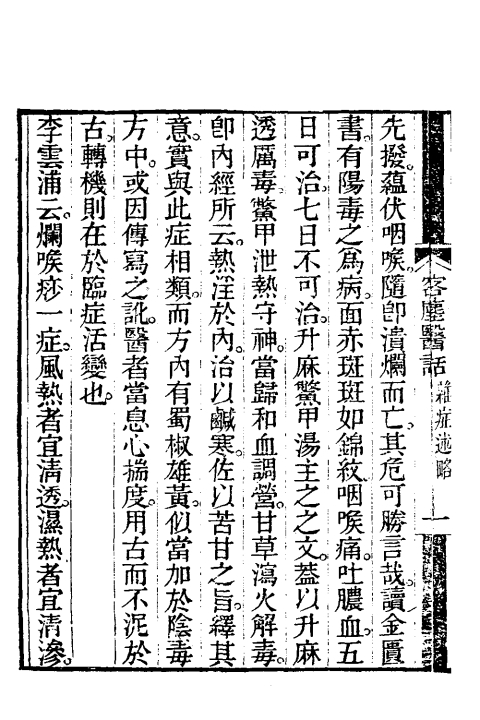 客塵醫話 雜症述略 一
先撥。蘊伏咽喉。隨卽潰爛而亡。其危可勝言哉。讀金匱
書。有陽毒之爲病。面赤斑斑如錦紋。咽喉痛。吐膿血。五
日可治。七日不可治。升麻鱉甲湯主之之文。蓋以升麻
透厲毒。鱉甲泄熱守神。當歸和血調營。甘草瀉火解毒。
卽內經所云。熱淫於內。治以鹹寒。佐以苦甘之旨。繹其
意。實與此症相類。而方內有蜀椒雄黃。似當加於陰毒
方中。或因傳寫之訛。醫者當息心揣度。用古而不泥於
古。轉機則在於臨症活變也。
李雲浦云。爛喉痧一症。風熱者宜淸透。濕熱者宜清滲。